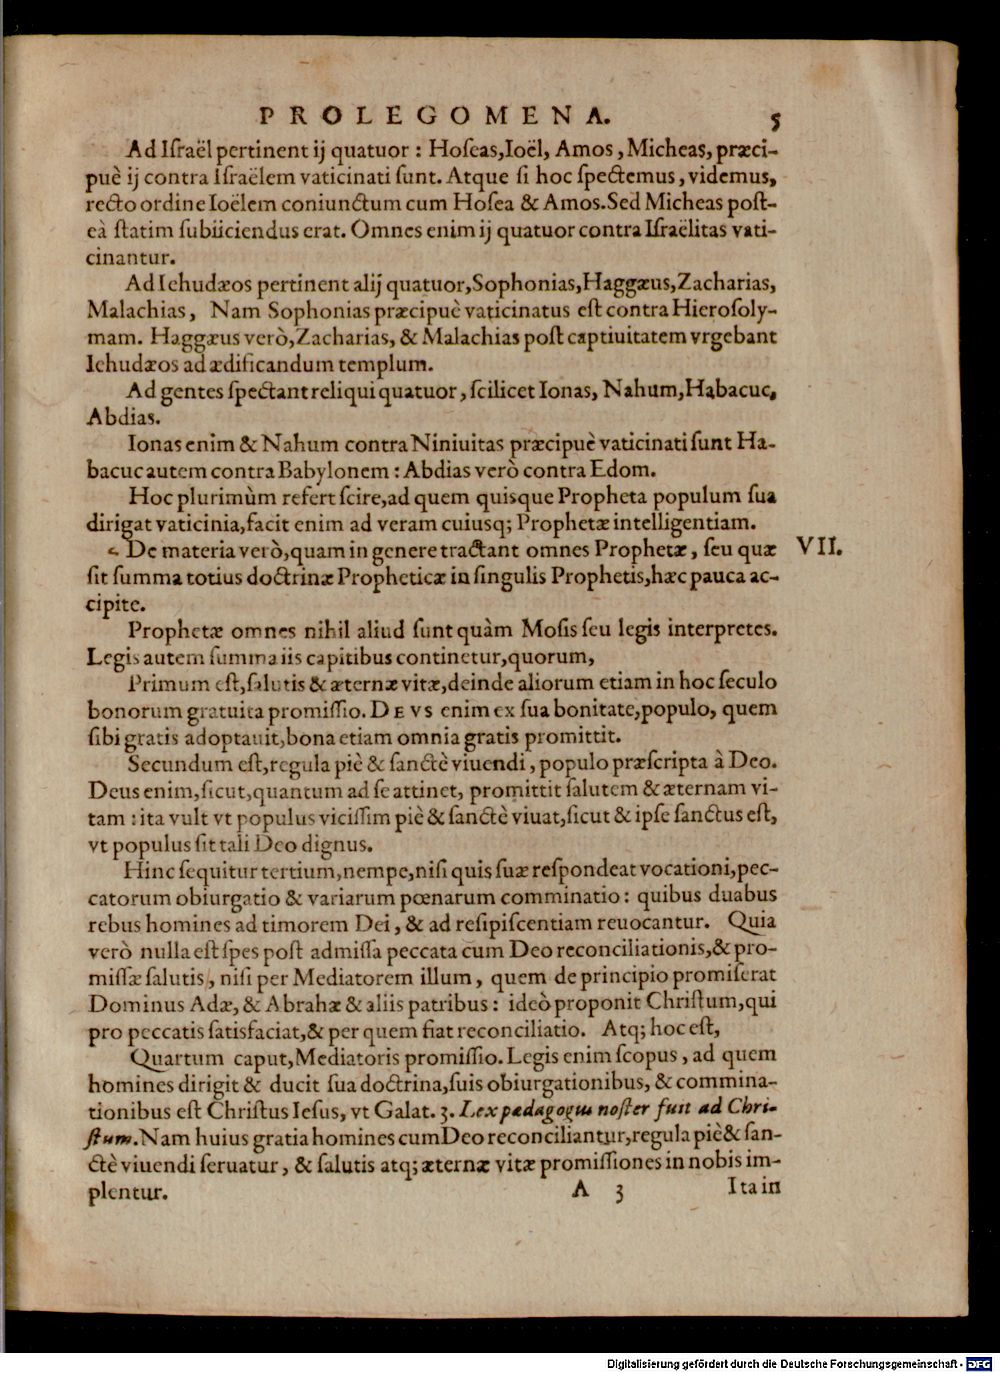 PROLEGOMENA. 5
Ad Iſraël pertinent ij quatuor : Hoſeas, Ioël, Amos, Micheas, præci-
puè ij contra Iſraëlem vaticinati ſunt. Atque ſi hoc ſpectemus, videmus,
recto ordine Ioëlem coniunctum cum Hoſea & Amos. Sed Micheas poſt-
eà ſtatim ſubiiciendus erat. Omnes enim ij quatuor contra Iſraëlitas vati-
cinantur.
Ad Iehudæos pertinent alij quatuor, Sophonias, Haggæus, Zacharias,
Malachias, Nam Sophonias præcipuè vaticinatus eſt contra Hieroſoly-
mam. Haggæus verò, Zacharias, & Malachias poſt captiuitatem vrgebant
Iehudæos ad ædificandum templum.
Ad gentes ſpectant reliqui quatuor, ſcilicet Ionas, Nahum, Habacuc,
Abdias.
Ionas enim & Nahum contra Niniuitas præcipuè vaticinati ſunt Ha-
bacuc autem contra Babylonem : Abdias verò contra Edom.
Hoc plurimùm refert ſcire, ad quem quisque Propheta populum ſua
dirigat vaticinia, facit enim ad veram cuiusq; Prophetæ intelligentiam.
De materia verò, quam in genere tractant omnes Prophetæ, ſeu quæ VII.
ſit ſumma totius doctrinæ Propheticæ in ſingulis Prophetis, hæc pauca ac-
cipite.
Prophetæ omnes nihil aliud ſunt quàm Moſis ſeu legis interpretes.
Legis autem ſumma iis capitibus continetur, quorum,
Primum eſt, ſalutis & æternæ vitæ, deinde aliorum etiam in hoc ſeculo
bonorum gratuita promiſſio. DEVS enim ex ſua bonitate, populo, quem
ſibi gratis adoptauit, bona etiam omnia gratis promittit.
Secundum eſt, regula piè & ſanctè viuendi, populo præſcripta à Deo.
Deus enim, ſicut, quantum ad ſe attinet, promittit ſalutem & æternam vi-
tam : ita vult vt populus viciſſim piè & ſanctè viuat, ſicut & ipſe ſanctus eſt,
vt populus ſit tali Deo dignus.
Hinc ſequitur tertium, nempe, niſi quis ſuæ reſpondeat vocationi, pec-
catorum obiurgatio & variarum pœnarum comminatio : quibus duabus
rebus homines ad timorem Dei, & ad reſipiſcentiam reuocantur. Quia
verò nulla eſt ſpes poſt admiſſa peccata cum Deo reconciliationis, & pro-
miſſæ ſalutis, niſi per Mediatorem illum, quem de principio promiſerat
Dominus Adæ, & Abrahæ & aliis patribus : ideò proponit Chriſtum, qui
pro peccatis ſatisfaciat, & per quem fiat reconciliatio. Atq; hoc eſt,
Quartum caput, Mediatoris promiſſio. Legis enim ſcopus, ad quem
homines dirigit & ducit ſua doctrina, ſuis obiurgationibus, & commina-
tionibus eſt Chriſtus Ieſus, vt Galat. 3. Lex pædagogus noſter fuit ad Chri-
ſtum. Nam huius gratia homines cum Deo reconciliantur, regula piè & ſan-
ctè viuendi ſeruatur, & ſalutis atq; æternæ vitæ promiſſiones in nobis im-
plentur. A 3 Ita in
Digitalisierung gefördert durch die Deutsche Forschungsgemeinschaft - DFG